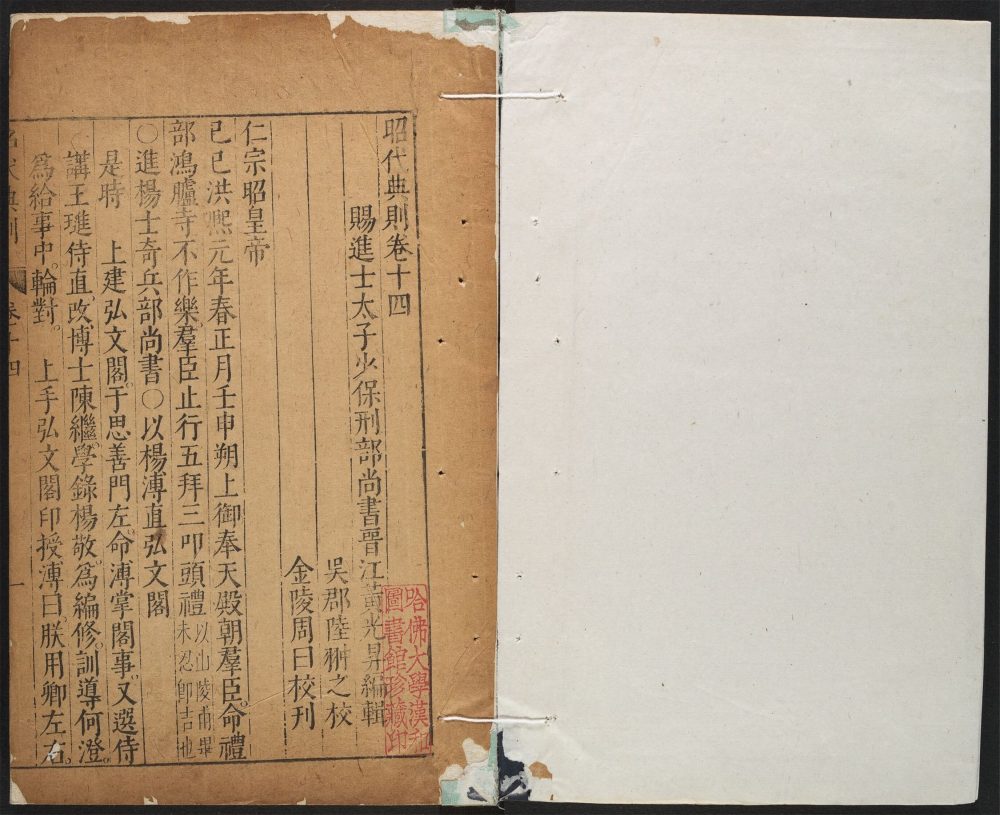 昭代典則卷十四
賜進士太子少保刑部尚書晋江黃光昇編輯
吳郡陸翀之校
金陵周曰校刊
仁宗昭皇帝
己巳洪熙元年春正月壬申朔上御奉天殿朝羣臣命禮
部鴻臚寺不作樂羣臣止行五拜三叩頭禮以山陵甫畢未忍卽吉也
○進楊士奇兵部尚書○以楊溥直弘文閣
是時 上建弘文閣于思善門左命溥掌閣事又選侍
講王璡侍直改博士陳繼學錄楊敬爲編修訓導何澄
爲給事中輪對 上手弘文閣印授溥曰朕用卿左右
昭代典則 卷十四 一
哈佛大學漢和
圖書館珍藏印